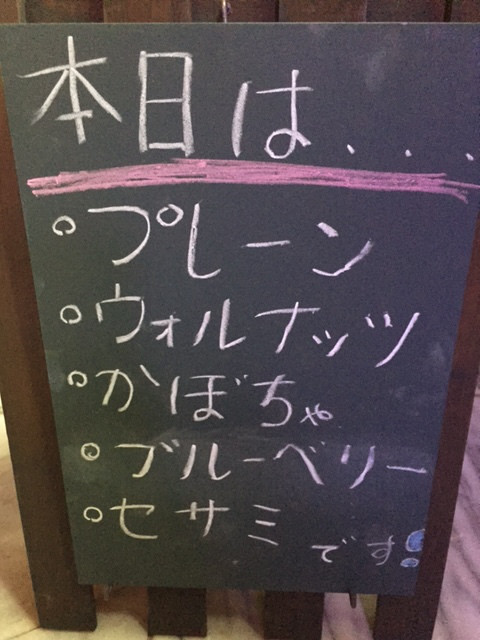 本日は....
○プレーン
○ウォルナッツ
○かぼちゃ
○ブルーベリー
○セサミ
です!